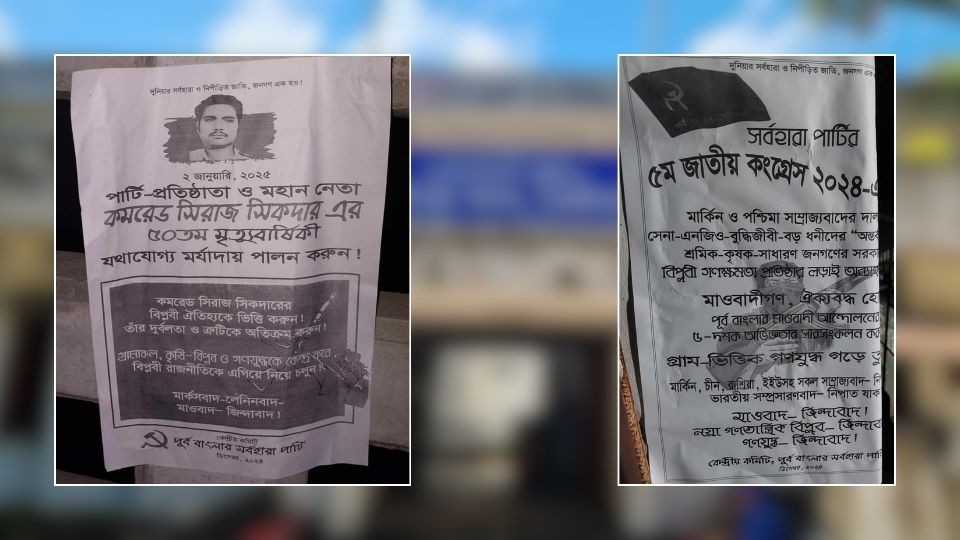 দুনিয়ার সর্বহারা ও নিপীড়িত জাতি, জনগণ এক হও!
২ জানুয়ারি, ২০২৫
পার্টি-প্রতিষ্ঠাতা ও মহান নেতা
কমরেড সিরাজ সিকদার এর
৫০তম মৃত্যুবার্ষিকী
যথাযোগ্য মর্যাদায় পালন করুন!
কমরেড সিরাজ সিকদারের
বিপ্লবী ঐতিহ্যকে ভিত্তি করুন!
তাঁর দুর্বলতা ও ত্রুটিকে অতিক্রম করুন!
গ্রামাঞ্চল, কৃষি-বিপ্লব ও গণযুদ্ধকে কেন্দ্র করে
বিপ্লবী রাজনীতিকে এগিয়ে নিয়ে চলুন!
মার্কসবাদ-লেনিনবাদ-
মাওবাদ- জিন্দাবাদ!
কেন্দ্রীয় কমিটি
পূর্ব বাংলার সর্বহারা পার্টি
ডিসেম্বর, ২০২৪
দুনিয়ার সর্বহারা ও নিপীড়িত জাতি, জনগণ এক
সর্বহারা পার্টির
৫ম জাতীয় কংগ্রেস ২০২৪-এ
মার্কিন ও পশ্চিমা সাম্রাজ্যবাদের দাল
সেনা-এনজিও-বুদ্ধিজীবী-বড় ধনীদের “অন্ত
শ্রমিক-কৃষক-সাধারণ জনগণের সরকা
বিপ্লবী গণক্ষমতা প্রতিষ্ঠার লড়াই অব্যাহ
মাওবাদীগণ, ঐক্যবদ্ধ হো
পূর্ব বাংলার মাওবাদী আন্দোলনের
৫-দশক অভিজ্ঞতার সারসংকলন কর
গ্রাম-ভিত্তিক গণযুদ্ধ গড়ে তু
মার্কিন, চীন, রাশিয়া, ইইউসহ সকল সাম্রাজ্যবাদ- নি
ভারতীয় সম্প্রসারণবাদ- নিপাত যাক
মাওবাদ- জিন্দাবাদ!
নয়া গণতান্ত্রিক বিপ্লব- জিন্দাব
গণযুদ্ধ- জিন্দাবাদ!
কেন্দ্রীয় কমিটি, পূর্ব বাংলার সর্বহারা পার্টি
ডিসেম্বর, ২০২৪